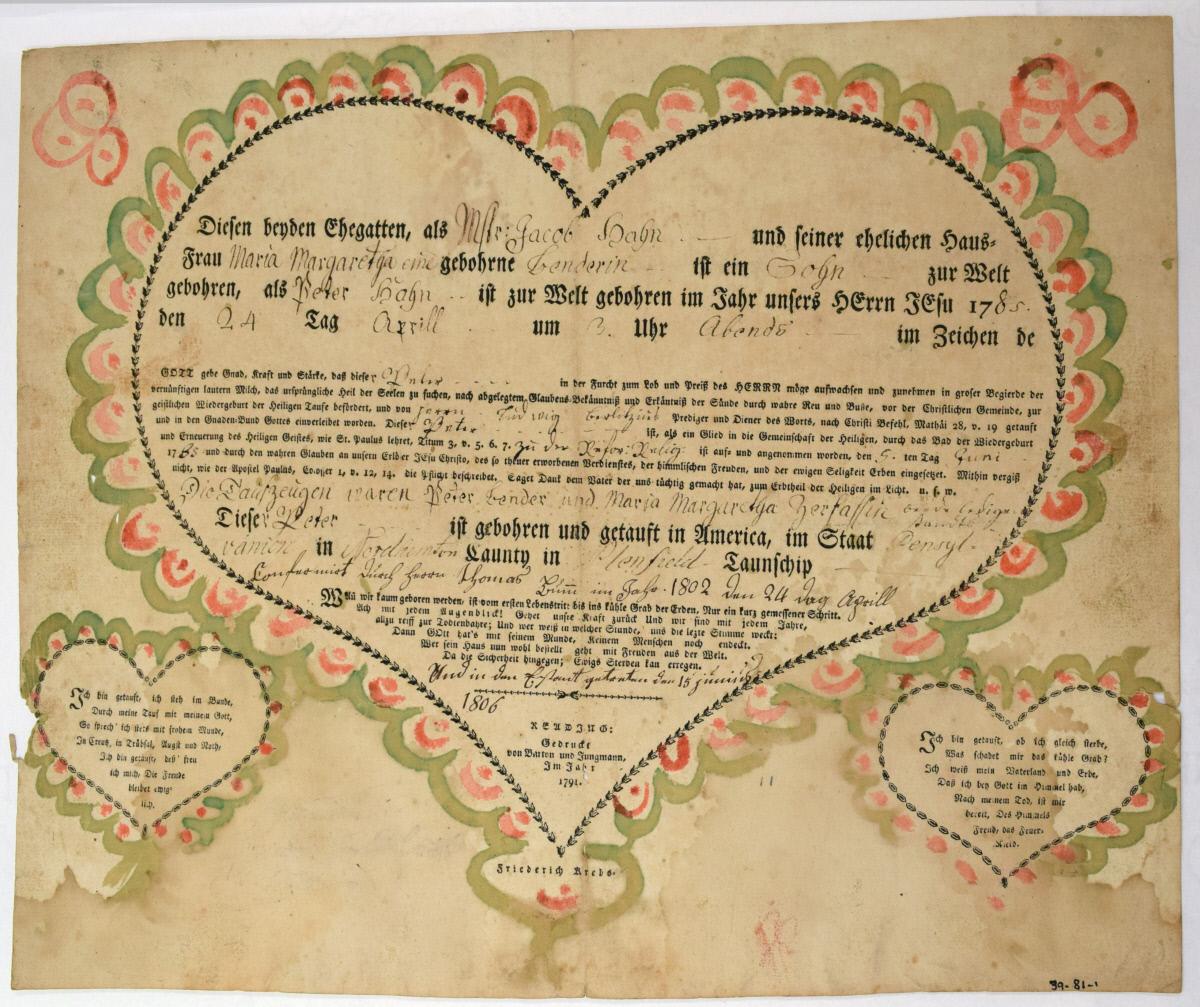 Diesen beyden Ehegatten, als Mstr: Jacob Hahn und seiner ehelichen Haus-
Frau Maria Margaretha eine gebohrne Benderin ist ein Sohn zur Welt
gebohren, als Peter Hahn ist zur Welt gebohren im Jahr unsers HErrn JEsu 1785.
den 24 Tag Aprill um 3. Uhr Abends im Zeichen de
GOTT gebe Gnad, Kraft und Stärke, daß dieser Peter in der Furcht zum Lob und Preiß des HERRN möge aufwachsen und zunehmen in groser Begierde der
vernünftigen lautern Milch, das ursprüngliche Heil der Seelen zu suchen, nach abgelegtem Glaubens-Bekänntniß und Erkäntniß der Sünde durch wahre Reu und Buße, vor der Christlichen Gemeinde, zur
geistlichen Wiedergeburt der Heiligen Taufe befördert, und von Herrn Prediger und Diener des Worts, nach Christi Befehl, Mathäi 28, v. 19 getauft
und in den Gnaden-Bund Gottes einverleibet worden. Dieser Peter ist, als ein Glied in die Gemeinschaft der Heiligen, durch das Bad der Wiedergeburt
und Erneuerung des Heiligen Geistes, wie St. Paulus lehret, Titum 3, v. 5. 6. 7. zu der Refor: Relig: ist auf- und angenommen worden, den 5. ten Tag Juni
1785 und durch den wahren Glauben an unsern Erlöser JEsu Christo, des so theuer erworbenen Verdienstes, der himmlischen Freuden, und der ewigen Seligkeit Erben eingesetzt. Mithin vergiß
nicht, wie der Apostel Paulus, Co. 1, v. 12, 14. die Pflicht beschreibet. Saget Dank dem Vater der uns tüchtig gemacht hat, zum Erbtheil der Heiligen im Licht. u. s. w.
Die Taufzeugen waren Peter Bender und Maria Margaretha Zerfassin beyde ledigen
standts
Dieser Peter ist gebohren und getauft in America, im Staat Pensyl-
vanien in Nordhemton Caunty in Plenfield Taunschip
Confermirt durch Herrn Thomas im Jahr 1802 den 24 dag Aprill
Wan wir kaum geboren werden, ist vom ersten Lebenstrit: bis ins kühle Grab der Erden, Nur ein kurz gemessener Schritt.
Ach mit jedem Augenblick! Gehet unsre Kraft zurück Und wir sind mit jedem Jahre,
allzu reiff zur Todtenbahre; Und wer weiß in welcher Stunde, uns die lezte Stimme weckt;
Dann GOtt hat's mit seinem Munde, Keinem Menschen noch endeckt.
Wer sein Haus nun wohl bestellt geht mit Freuden aus der Welt.
Da die Sicherheit hingegen; Ewigs Sterben kan erregen.
Und in den Estant getreten den 15 junius
1806
READING:
Gedruckt
von Barton und Jungmann,
Im Jahr
1791.
Friederich Krebs.
Ich bin getauft, ich steh im Bunde,
Durch meine Tauf mit meinem Gott,
So sprech' ich stets mit frohem Munde,
In Creutz, in Trübsal, Angst und Noth;
Ich bin getauft, deß' freu
ich mich, Die Freude
bleibet ewig-
lich.
Ich bin getauft, ob ich gleich sterbe,
Was schadet mir das kühle Grab?
Ich weiß mein Vaterland und Erbe,
Daß ich bey Gott im Himmel hab,
Nach meinem Tod, ist mir
bereit, Des Himmels
Freud, das Feuer-
Kleid.
39-81-1